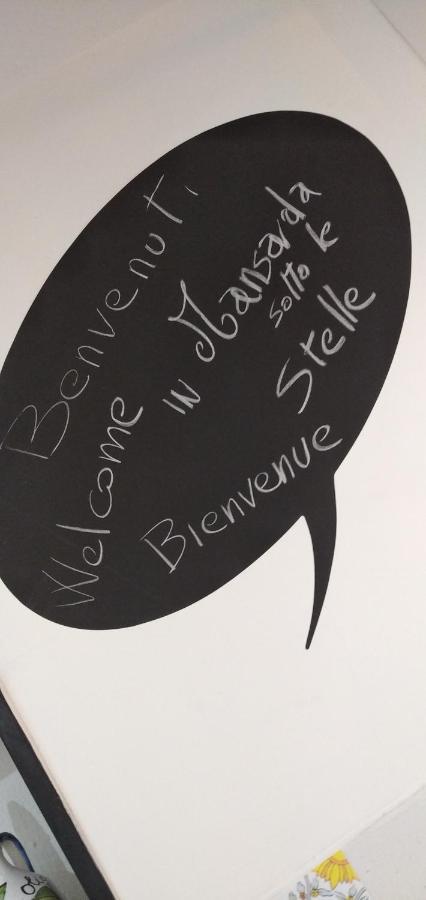 Benvenuti
Welcome
IN Mansarda
sotto le
Stelle
Bienvenue